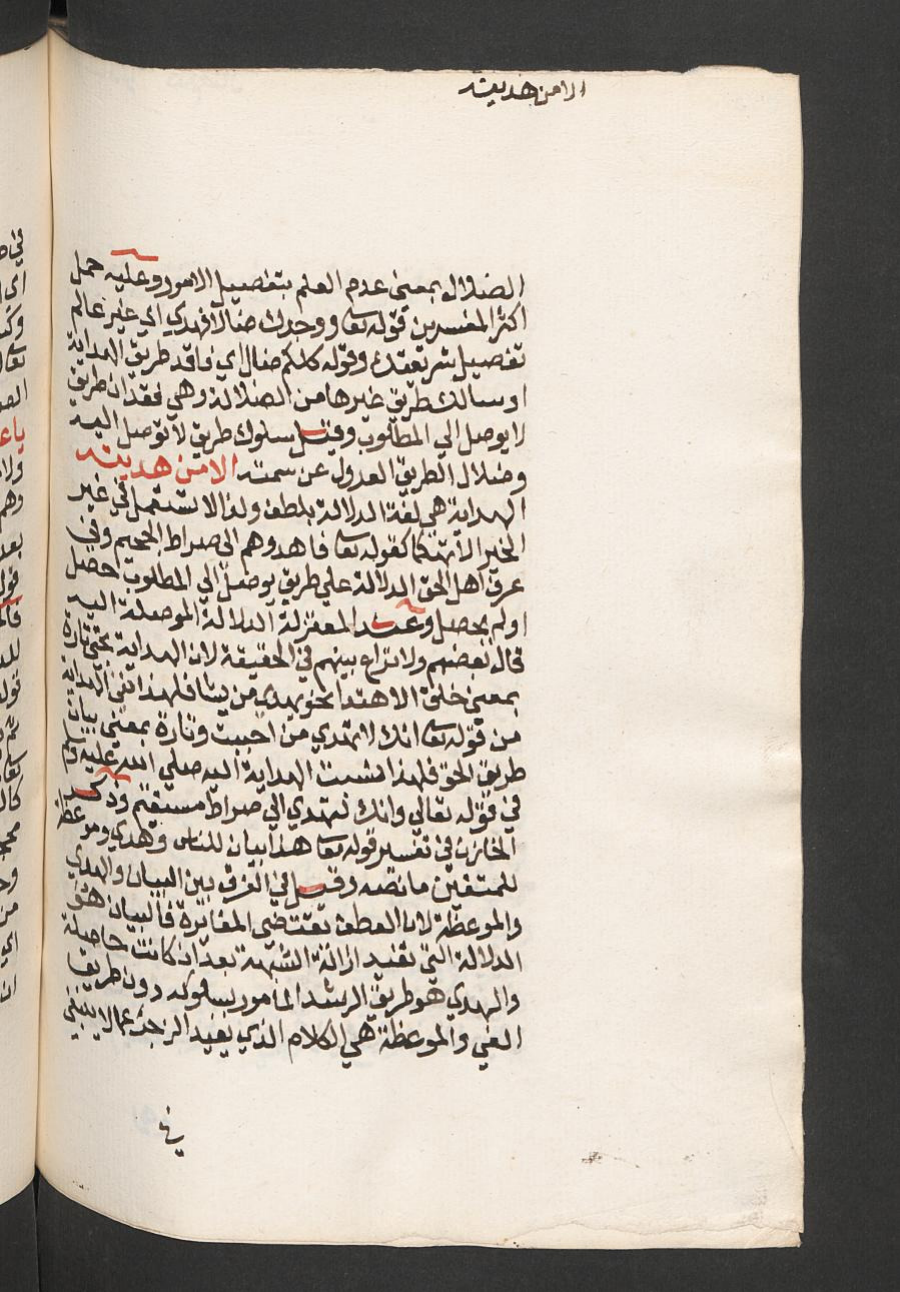 الا من هديته
الضلال بمعنى عدم العلم بتفصيل الامور وعليه حمل
اكثر المفسرين قوله تعا ووجدك ضالا فهدي اي غير عالم
تفصيل شريعتك وقوله كلكم ضال اي فاقد طريق الهداية
او سالك طريق غيرها من الضلالة وهي فقدان طريق
لا يوصل الي المطلوب وقيل سلوك طريق لا توصل اليه
وضلال الطريق العدول عن سمته الا من هديته
الهداية هي لغة الدلالة بلطف ولذا لا تستعمل في غير
الخير الا تهكما كقوله تعا فاهدوهم الى صراط الجحيم وفي
عرف اهل الحق الدلالة علي طريق يوصل الي المطلوب احصل
او لم يحصل وعند المعتزلة الدلالة الموصلة اليه
قال بعضهم ولا نزاع بينهم في الحقيقة لان الهداية تجئ تارة
بمعنى خلق الاهتدا نحو يهدي من يشا فلهذا نفى الهداية
من قوله تعا انك لا تهدي من احببت وتارة بمعنى بيان
طريق الحق فلهذا نسبت الهداية اليه صلي الله عليه وسلم
في قوله تعالي وانك لتهدي الي صراط مستقيم وذكر
الخازن في تفسير قوله تعا هذا بيان للناس وهدي وموعظة
للمتقين ما نصه وقيل في الفرق بين البيان والهدي
والموعظة لان العطف تقتضي المغايرة فالبيان هو
الدلالة التي تفيد ازالة الشبهة بعد ان كانت حاصلة
والهدي هو طريق الرشد المامور بسلوكه دون طريق
الغي والموعظة هي الكلام الذي يفيد الزجر عما لا ينبغي
في